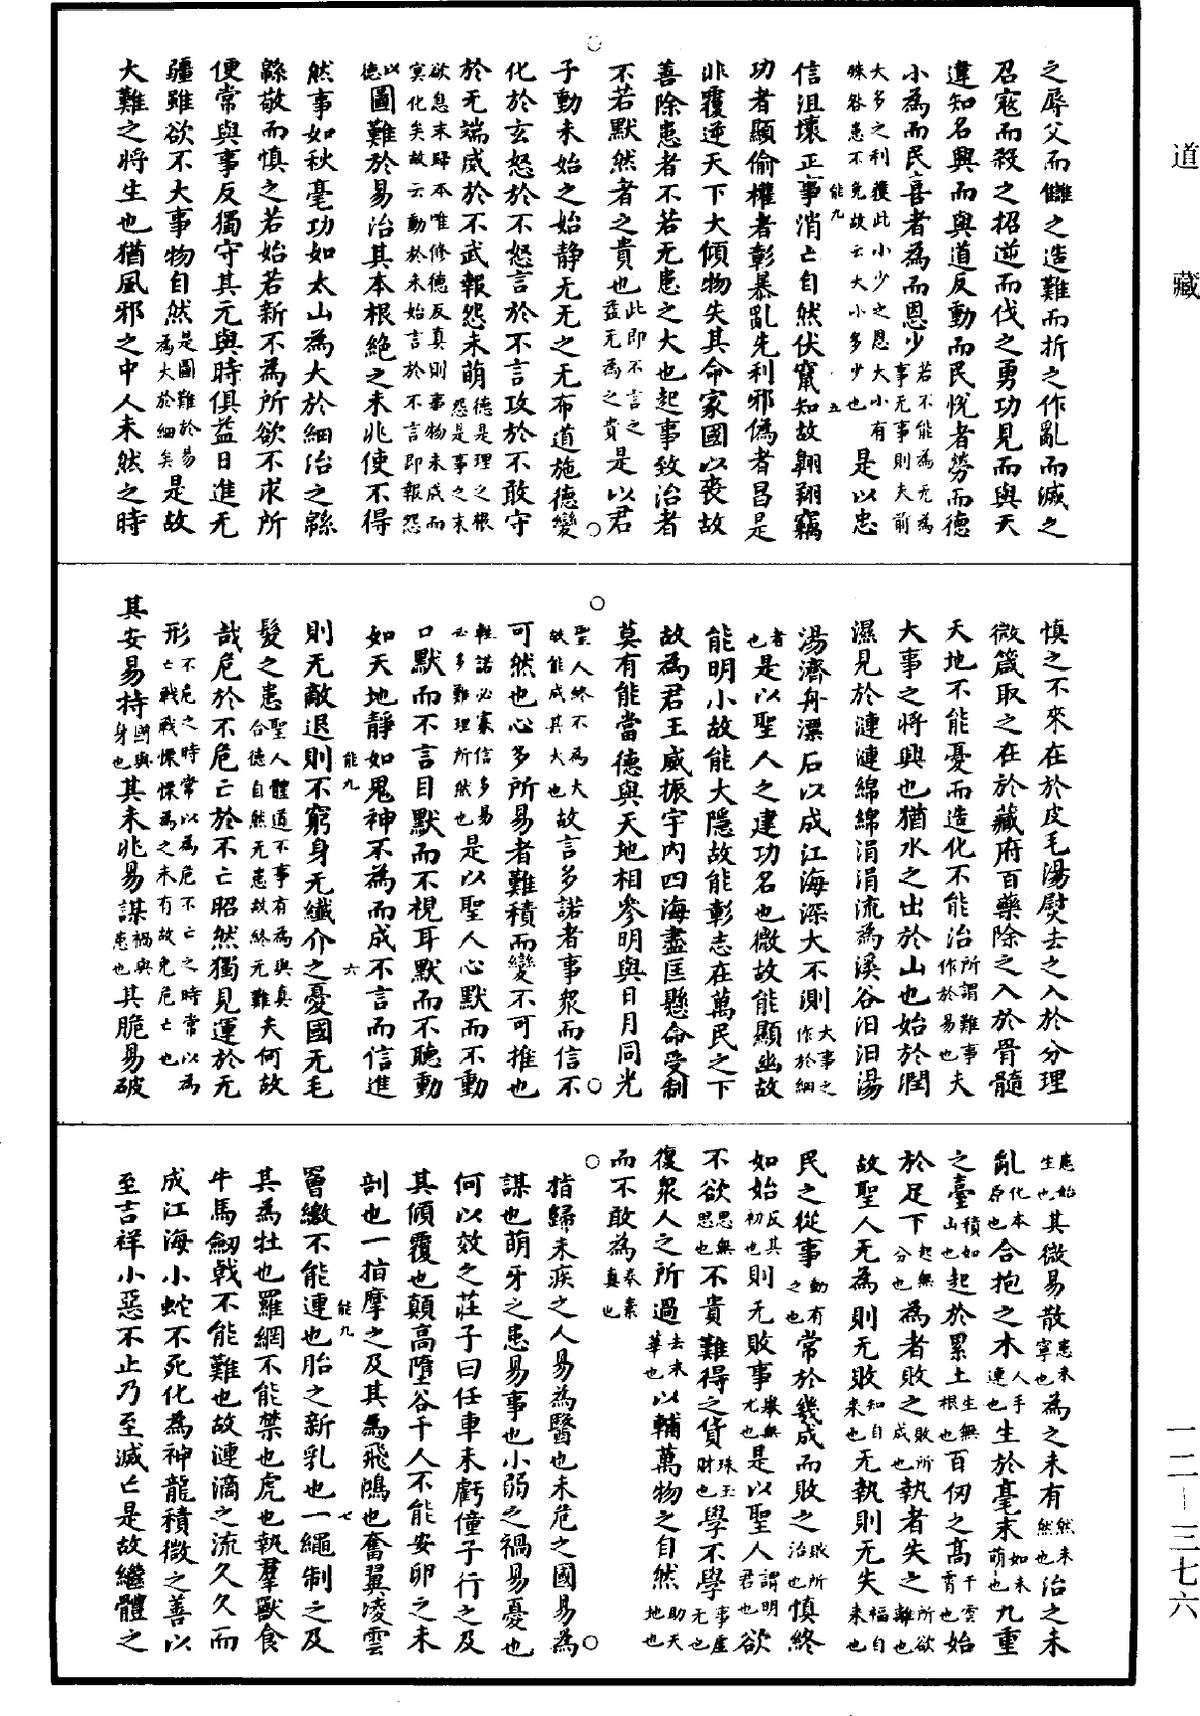 道藏
之辱父而讎之造難而折之作亂而滅之
召寇而殺之招逆而伐之勇功見而與天
違知名興而與道反動而民悅者勞而德
小為而民喜者為而恩少若不能為无為事无事則夫前
大多之利獲此小少之恩大小有殊咎患不免故云大小多少也是以忠
能九 五
信沮壞正事消亡自然伏竄知故翱翔竊
功者顯偷權者彰暴亂先利邪偽者昌是
非覆逆天下大傾物失其命家國以喪故
善除患者不若无患之大也起事致治者
不若默然者之貴也此即不言之益无為之貴是以君
子動未始之始静无无之无布道施德變
化於玄怒於不怒言於不言攻於不敢守
於无端威於不武報怨未萌德是理之根怨是事之末
欲息末歸本唯修德反真則事物未成而冥化矣故云動於未始言於不言即報怨
以德圖難於易治其本根絶之未兆使不得
然事如秋毫功如太山為大於細治之緜
緜敬而慎之若始若新不為所欲不求所
便常與事反獨守其元與時俱益日進无
疆雖欲不大事物自然是圖難於易為大於細矣是故
大難之將生也猶風邪之中人未然之時
慎之不來在於皮毛湯熨去之入於分理
微箴取之在於藏府百藥除之入於骨髓
天地不能憂而造化不能治所謂難事作於易也夫
大事之將興也猶水之出於山也始於潤
濕見於漣漣綿綿涓涓流為溪谷汨汨湯
湯濟舟漂石以成江海深大不測大事之作於細
者也是以聖人之建功名也微故能顯幽故
能明小故能大隱故能彰志在萬民之下
故為君王威振宇内四海盡匡懸命受制
莫有能當德與天地相參明與日月同光
聖人終不為大故能成其大也故言多諾者事衆而信不
可然也心多所易者難積而變不可推也
輕諾必寡信多易必多難理所然也是以聖人心默而不動
口默而不言目默而不視耳默而不聽動
如天地靜如鬼神不為而成不言而信進
能九 六
則无敵退則不窮身无纖介之憂國无毛
髮之患聖人體道不事有為與真合德自然无患故終无難夫何故
哉危於不危亡於不亡昭然獨見運於无
形不危之時常以為危不亡之時常以為亡戰戰慄慄為之未有故免危亡也
其安易持國與身也其未兆易謀禍與患也其脆易破
患始生也其微易散患未寧也為之未有然未然也治之未
亂化本原也合抱之木人手連也生於毫末如未萌也九重
之臺積如山也起於累土生無根也百仞之高干雲霄也始
於足下起無分也為者敗之敗所成也執者失之所欲離也
故聖人无為則无敗知自來也无執則无失福自來也
民之從事動有之也常於幾成而敗之敗所治也慎終
如始反其初也則无敗事舉無尤也是以聖人謂明君也欲
不欲思無思也不貴難得之貨珠玉財也學不學事虛无也
復衆人之所過去末華也以輔萬物之自然助天地也
而不敢為奉素真也
指歸未疾之人易為醫也未危之國易為
謀也萌牙之患易事也小弱之禍易憂也
何以效之莊子曰任車未虧僮子行之及
其傾覆也顛高墮谷千人不能安卵之未
剖也一指摩之及其為飛鴻也奮翼凌雲
能九 七
罾繳不能連也胎之新乳也一繩制之及
其為牡也羅網不能禁也虎也執羣獸食
牛馬劒戟不能難也故漣滴之流久久而
成江海小蛇不死化為神龍積微之善以
至吉祥小惡不止乃至滅亡是故繼體之
一二—三七六